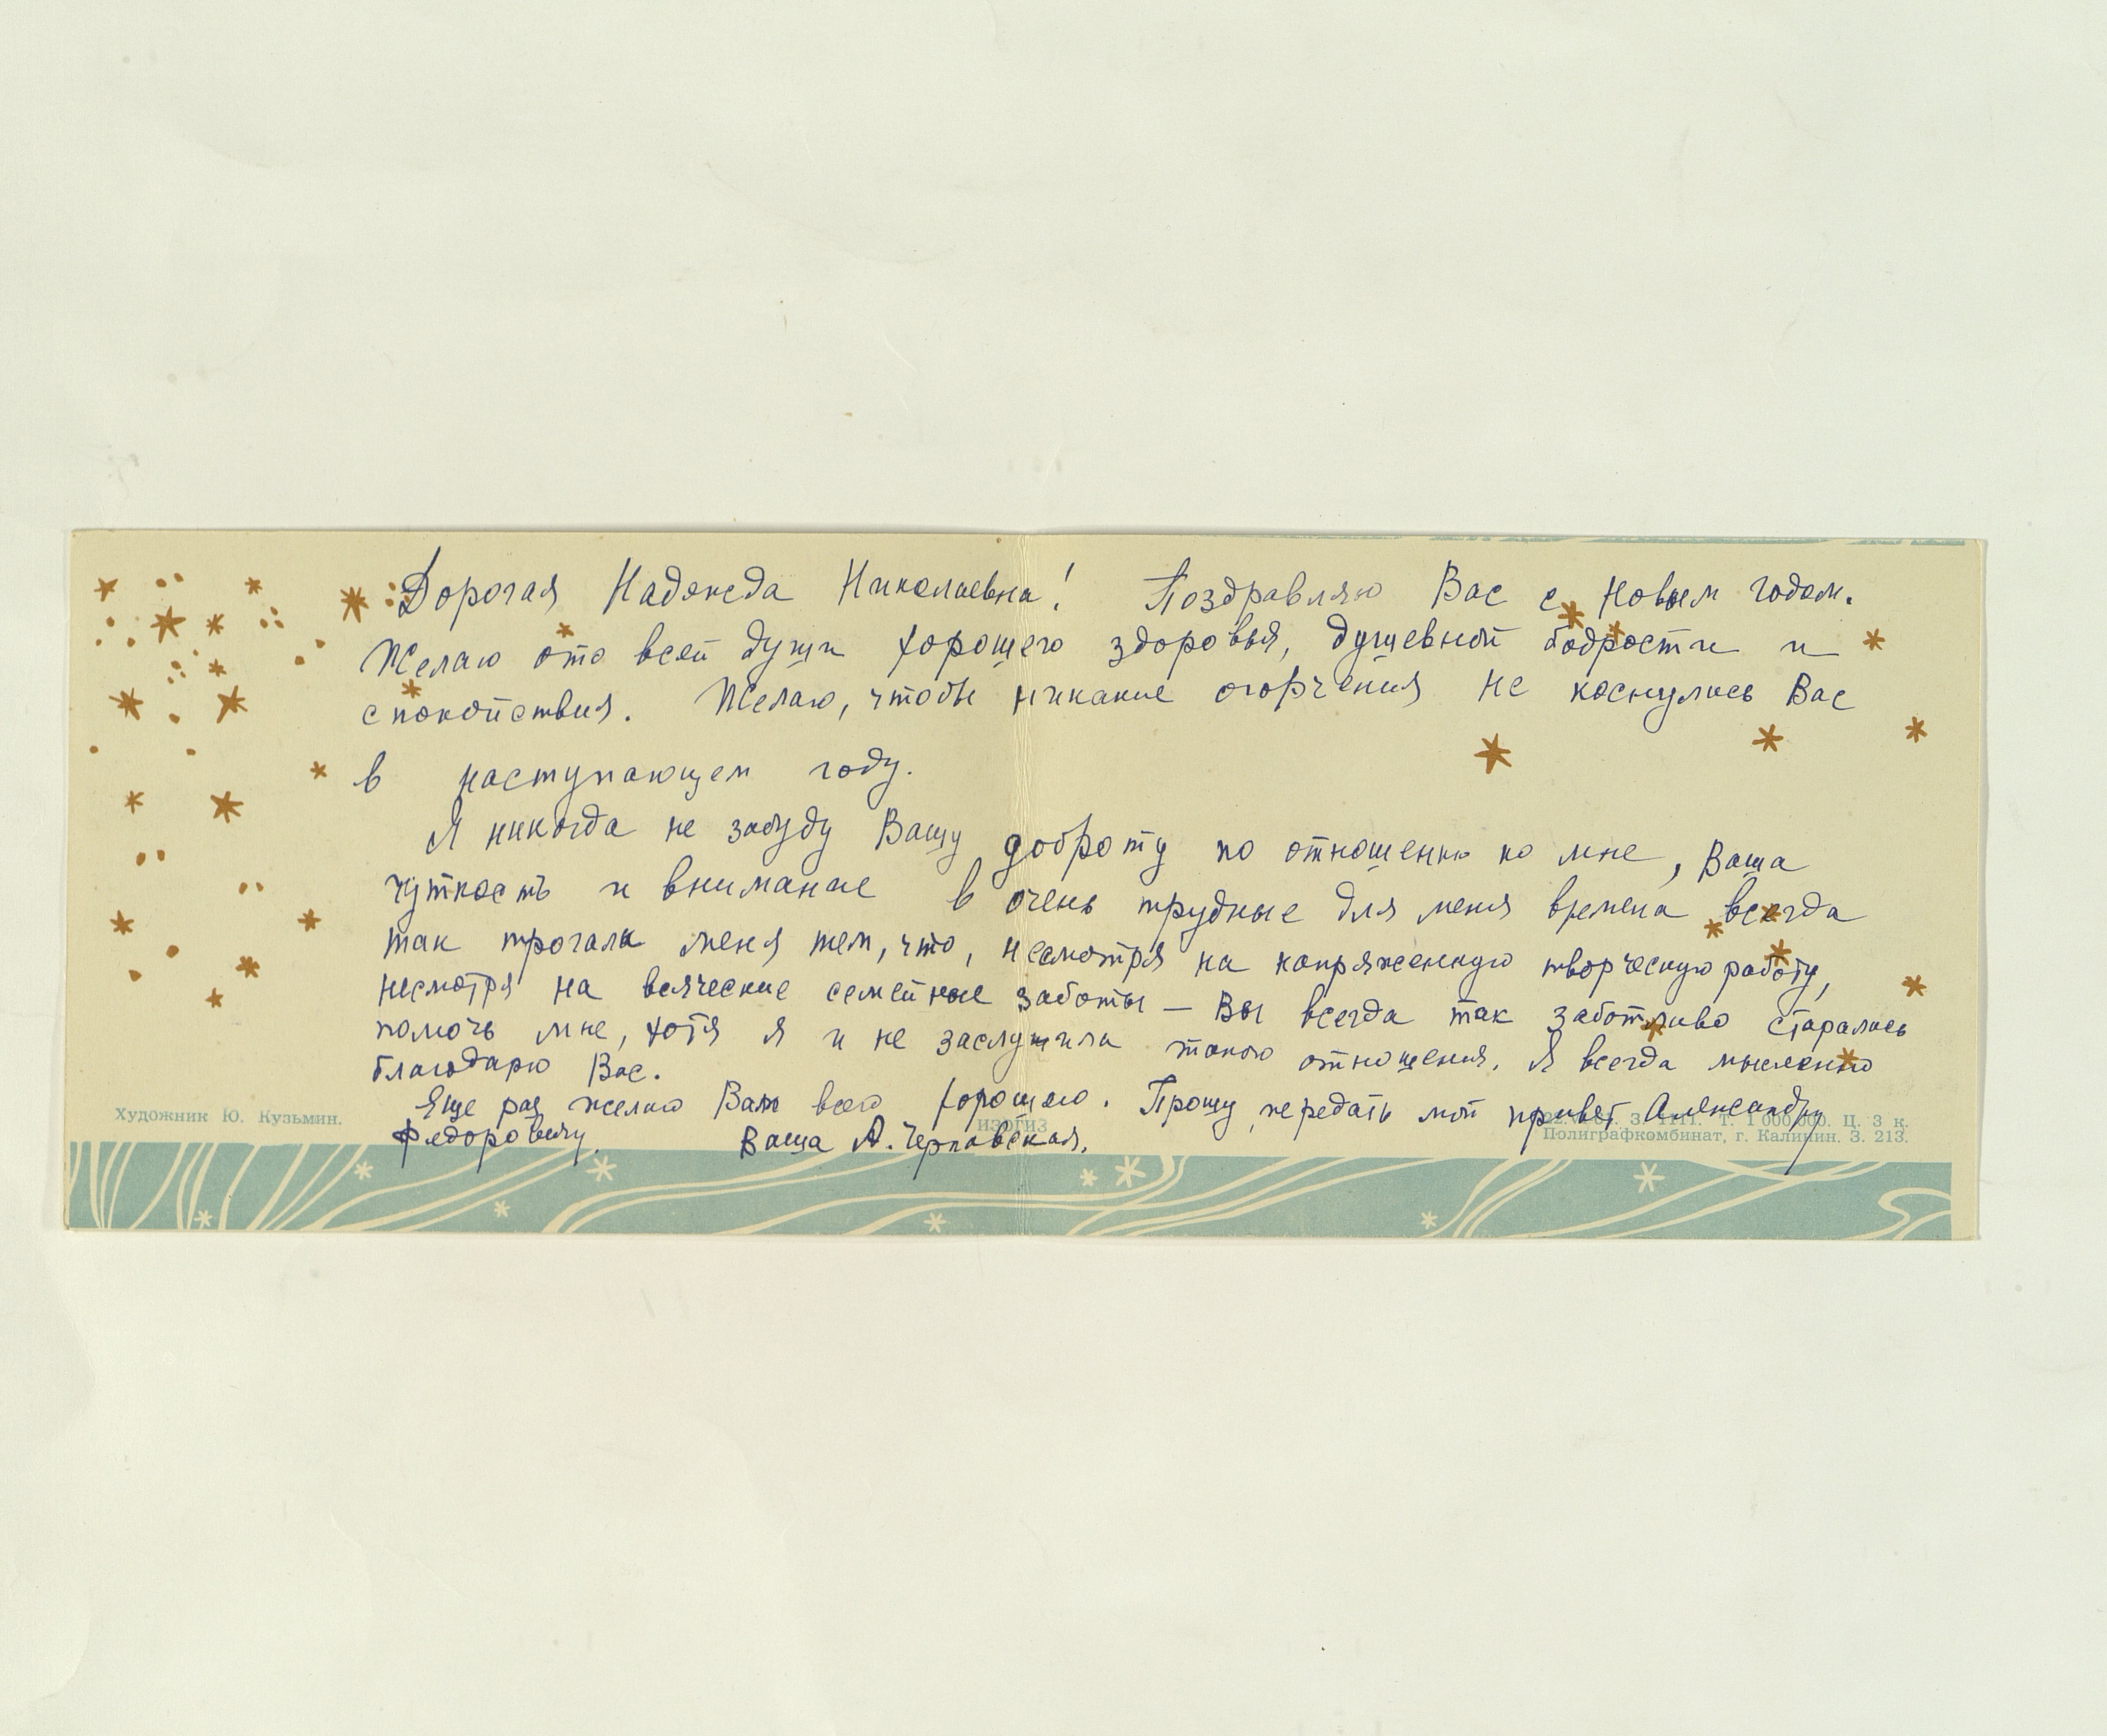 Дорогая Надежда Николаевна! Поздравляю Вас с Новым годом.
Желаю ото всей души хорошего здоровья, душевной бодрости и
спокойствия. Желаю, чтобы никакие огорчения не коснулись Вас
в наступающем году.
Я никогда не забуду Вашу доброту по отношению ко мне, Ваша
чуткость и внимание в очень трудные для меня времена всегда
так трогали меня тем, что, несмотря на напряженную творческую работу,
несмотря на всяческие семейные заботы — Вы всегда так заботливо старались
помочь мне, хотя я и не заслужила такого отношения. Я всегда мысленно
благодарю Вас.
Еще раз желаю Вам всего хорошего. Прошу передать мой привет Александру
Федоровичу.
Ваша А.
Художник Ю. Кузьмин.
ИЗОГИЗ
Т. 1 000 000. Ц. 3 к.
Полиграфкомбинат, г. Калинин. З. 213.